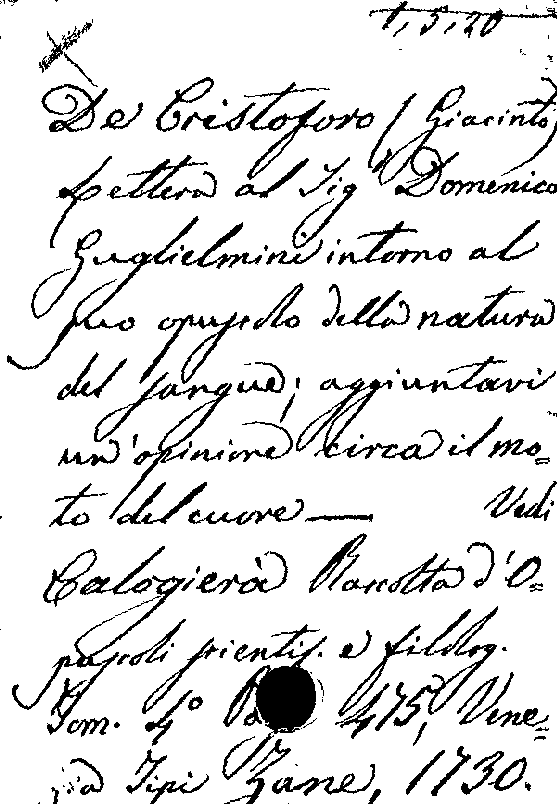 1, 5, 20
De Cristoforo (Giacinto)
Lettera al Sigr Domenico
Guglielmini intorno al
suo opuscolo della natura
del sangue; aggiuntavi
un'opinione circa il mo=
to del cuore — Vedi
Calogierà Raccolta d'O=
puscoli scientif. e filolog.
Tom. 4º 475, Vene=
Tipi Zane, 1730.